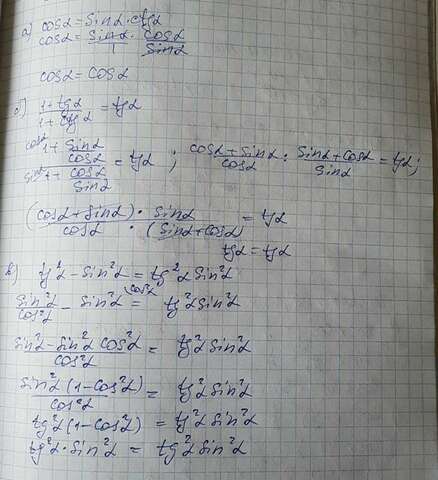 a) cosα = sinα · ctgα
cosα = sinα/1 · cosα/sinα
cosα = cosα
б) (1+tgα)/(1+ctgα) = tgα
(cosα/1 + sinα/cosα)/(sinα/1 + cosα/sinα) = tgα ; (cosα+sinα)/cosα : (sinα+cosα)/sinα = tgα;
((cosα+sinα) · sinα)/(cosα · (sinα+cosα)) = tgα
tgα = tgα
в) tg²α - sin²α = tg²α sin²α
sin²α/cos²α - sin²α cos²α = tg²α sin²α
(sin²α - sin²α cos²α)/cos²α = tg²α sin²α
(sin²α (1-cos²α))/cos²α = tg²α sin²α
tg²α (1-cos²α) = tg²α sin²α
tg²α · sin²α = tg²α sin²α